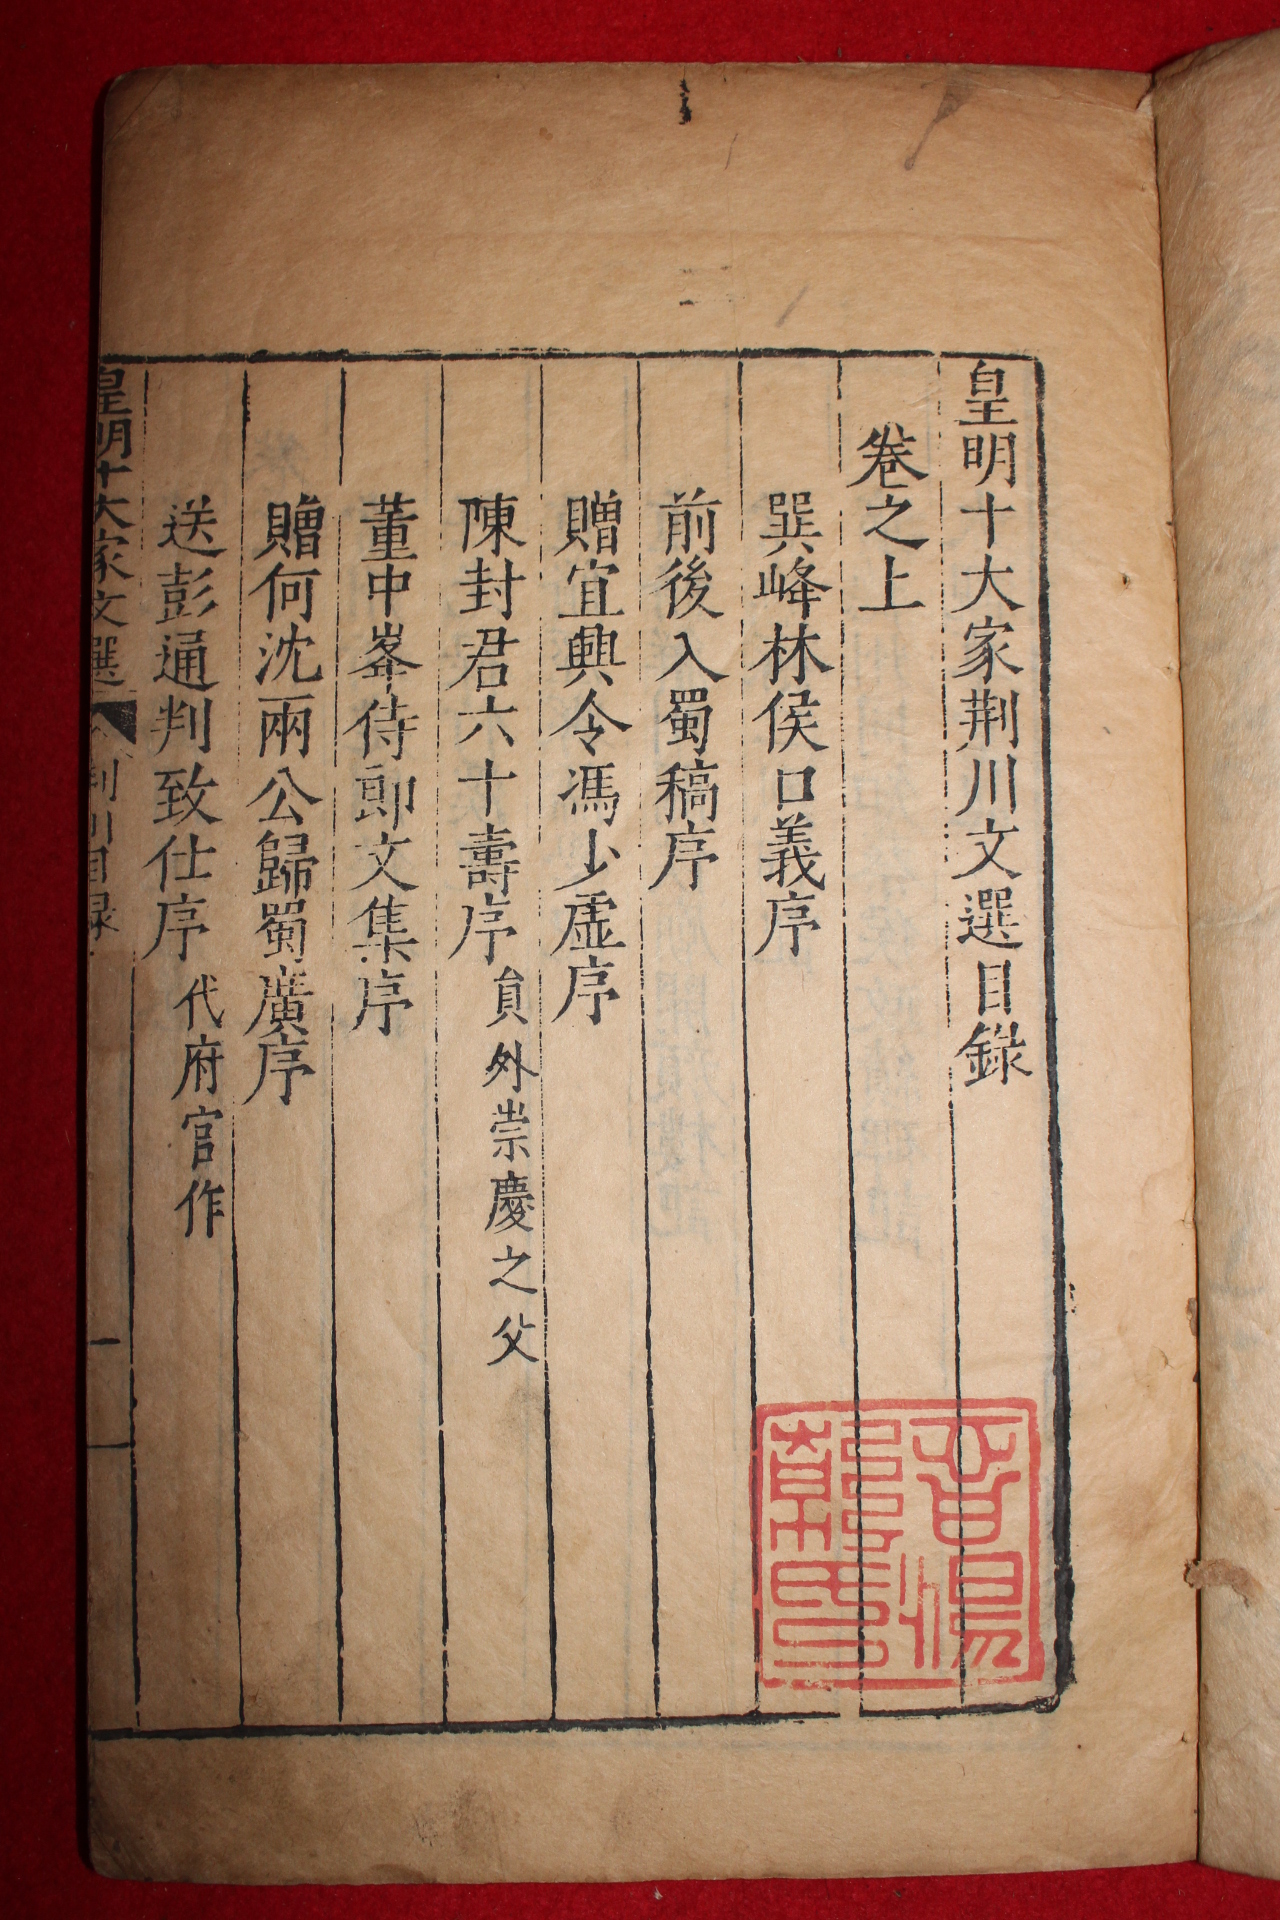 皇明十大家荆川文選目錄
卷之上
巽峰林侯口義序
前後入蜀稿序
贈宜興令馮少虛序
陳封君六十壽序 員外崇慶之父
董中峯侍郎文集序
贈何沈兩公歸蜀廣序
送彭通判致仕序 代府官作
皇明十大家文選 荆川目録 一